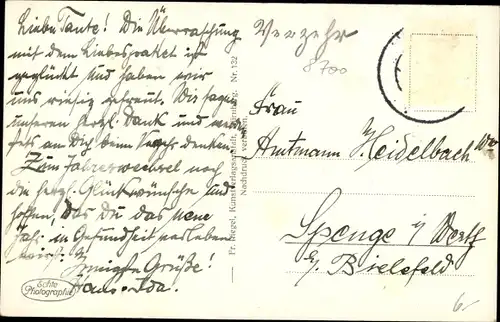 Liebe Tante! Die Überraschung
mit dem Liebespaket ist
geglückt und haben wir
uns riesig gefreut. Wir sagen
unseren herzl. Dank und werden
stets an Dich beim denken.
Zum Jahreswechsel noch
die herzl. Glückwünsche und
hoffen, das Du das neue
Jahr in Gesundheit verleben
wirst. Innigste Grüße!
Hans + Ida.
Echte
Photographie
Pr. Kunstverlagsanstalt Nr. 132
Nachdruck verboten.
Verzehr
8700
Frau
Amtmann Heidelbach Wwe
Spenge
b/ Bielefeld
6,-